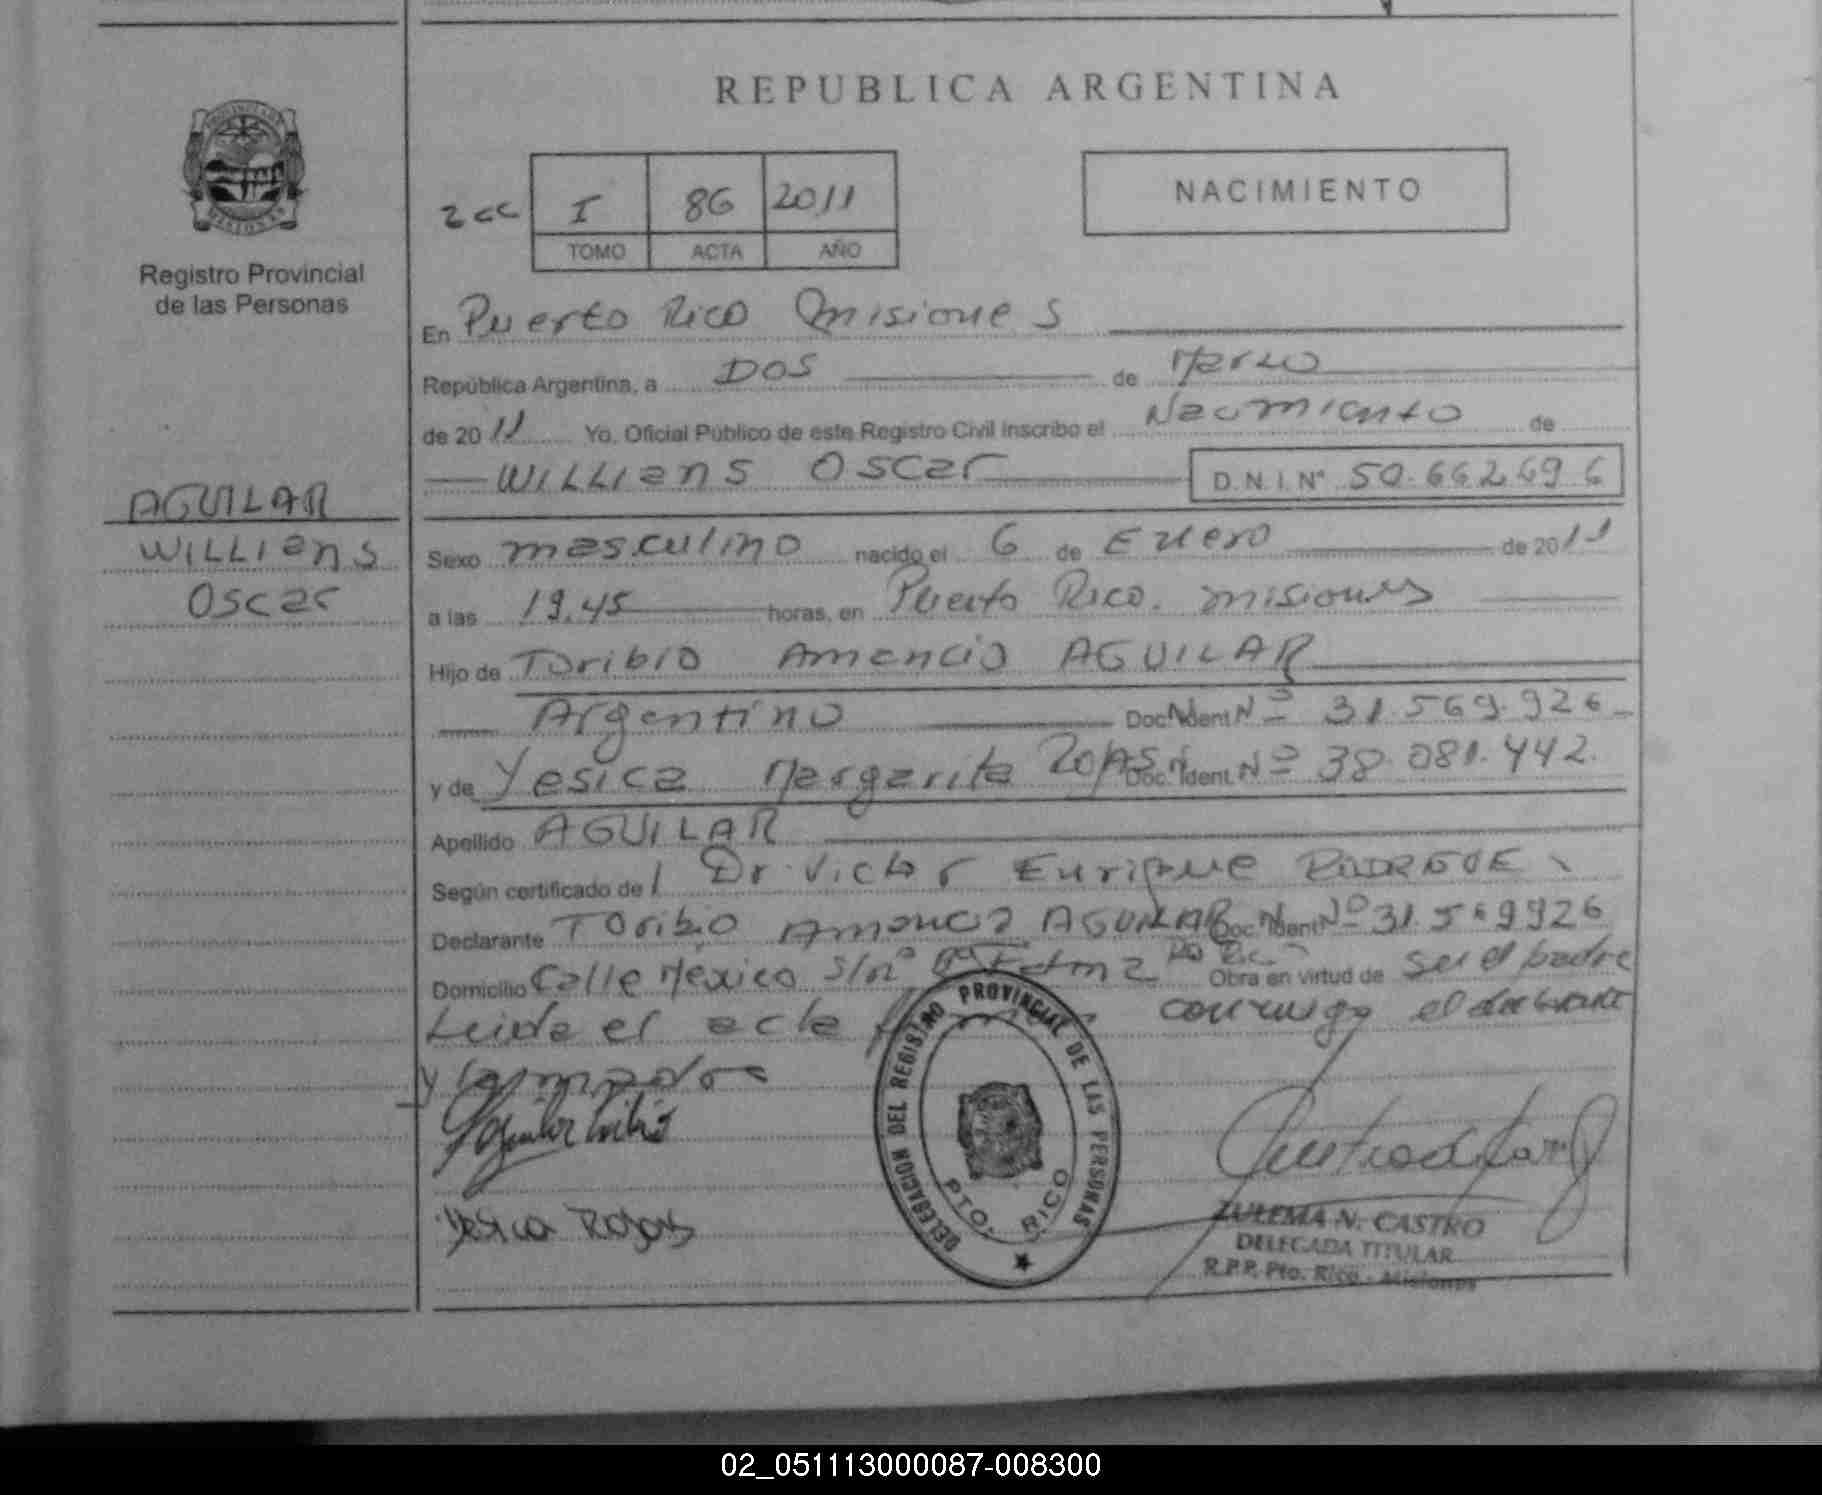 REPUBLICA ARGENTINA
PROVINCIA DE MISIONES
Registro Provincial
de las Personas
2cc I 86 2011
TOMO ACTA AÑO
NACIMIENTO
En Puerto Rico Misiones
República Argentina, a DOS de Marzo
de 2011 Yo, Oficial Público de este Registro Civil inscribo el Nacimiento de
WILLians Oscar D.N.I. N° 50.662.696
AGUILAR
WILLians
Oscar
Sexo masculino nacido el 6 de Enero de 2011
a las 19,45 horas, en Puerto Rico. misiones
Hijo de Toribio Amancio AGUILAR
Argentino Doc. Ident. Nº 31.569.926
y de Yesica Margarita ROJAS Doc. Ident. Nº 38.081.442.
Apellido AGUILAR
Según certificado de Dr. Victor Enrique
Declarante Toribio Amancio AGUILAR Doc. Ident. Nº 31.569926
Domicilio Calle Mexico s/nº Bº Fatima Pto Rico Obra en virtud de ser el padre
Leida el acta conmigo el declarante
y
Aguilar Toribio
Yesica Rojas
DELEGACION DEL REGISTRO PROVINCIAL DE LAS PERSONAS
PTO. RICO
ZULEMA N. CASTRO
DELEGADA TITULAR
R.P.P. Pto. Rico - Misiones
02_051113000087-008300